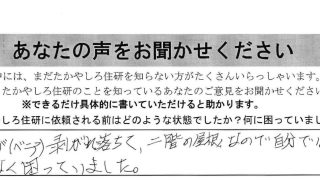 あなたの声をお聞かせください
中には、まだたかやしろ住研を知らない方がたくさんいらっしゃいます。
たかやしろ住研のことを知っているあなたのご意見をお聞かせください
※できるだけ具体的に書いていただけると助かります。
しろ住研に依頼される前はどのような状態でしたか?何に困っていまし
(ベニヤ)剥がれ落ちて、二階の屋根なので自分で
なく困っていました。